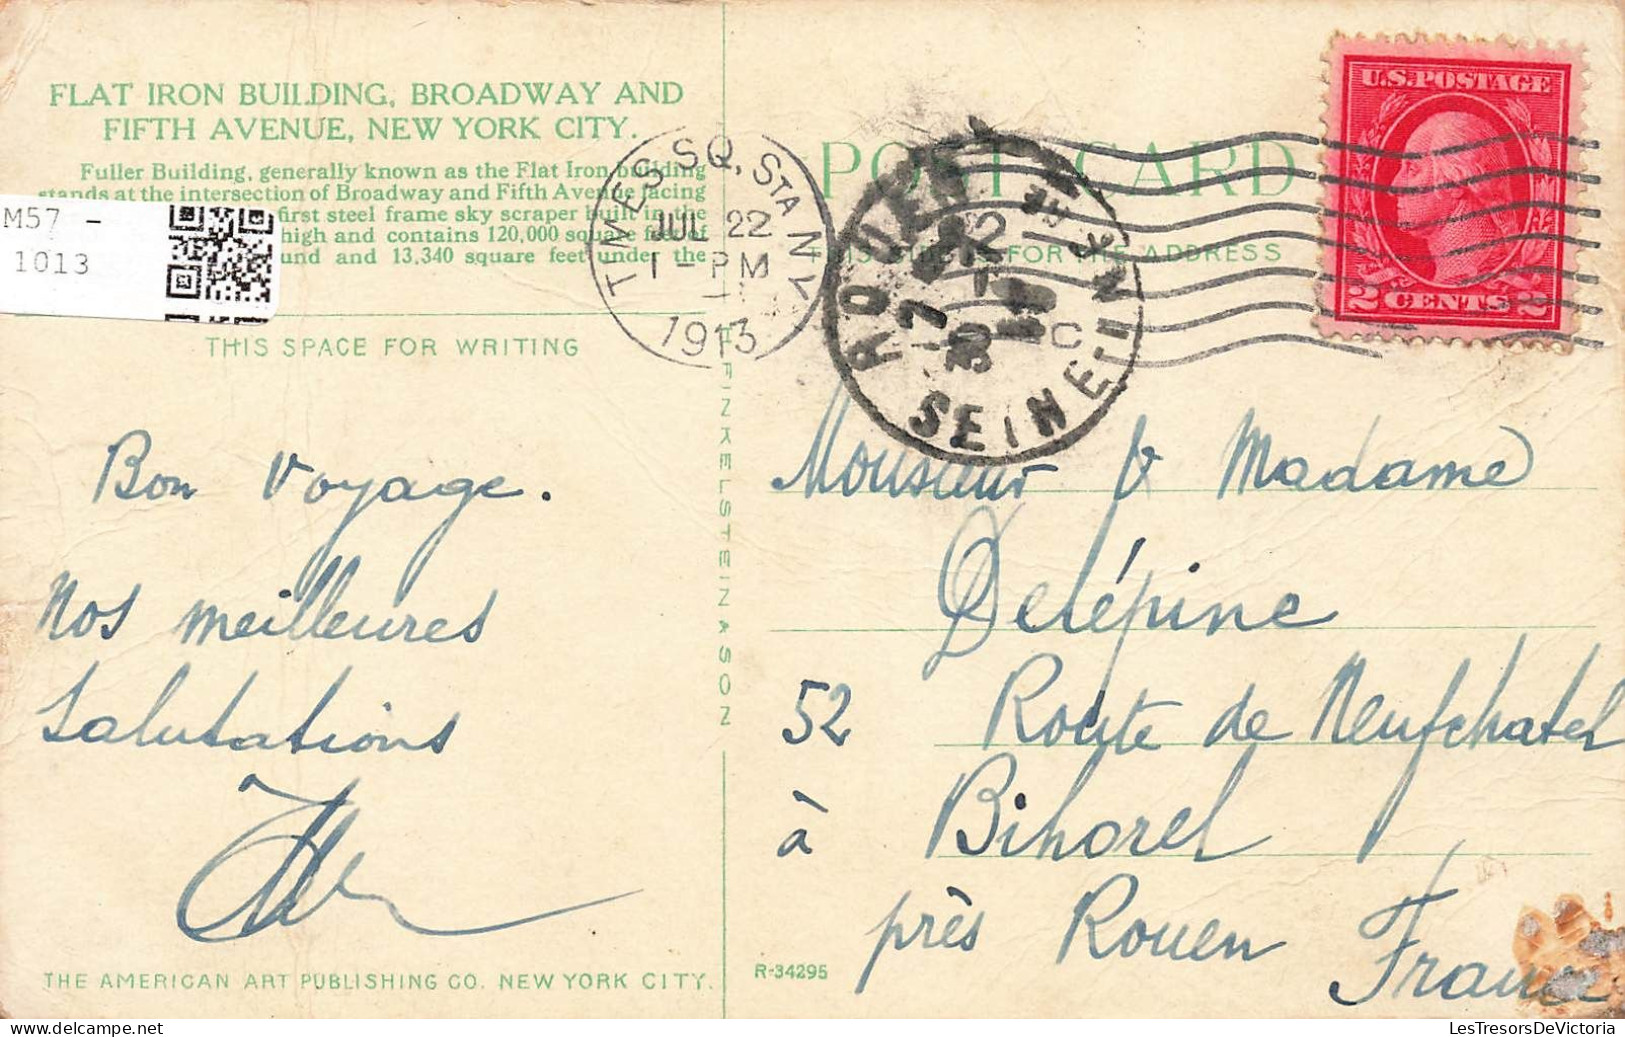 FLAT IRON BUILDING, BROADWAY AND
FIFTH AVENUE, NEW YORK CITY.
Fuller Building, generally known as the Flat Iron building
stands at the intersection of Broadway and Fifth Avenue facing
first steel frame sky scraper built in the
high and contains 120,000 square feet of
und and 13,340 square feet under the
M57 -
1013
THIS SPACE FOR WRITING
Bon Voyage.
Nos meilleures
Salutations
THE AMERICAN ART PUBLISHING CO. NEW YORK CITY.
H. FINKELSTEIN & SON
R-34295
POST CARD
THIS SPACE FOR THE ADDRESS
TIMES SQ. STA. N.Y.
JUL 22
1 - PM
1913
ROUEN
SEINE INF
17
30
U.S. POSTAGE
2 CENTS 2
Monsieur & Madame
Delépine
52 Route de Neufchatel
à Bihorel
près Rouen
France
LesTresorsDeVictoria
delcampe.net